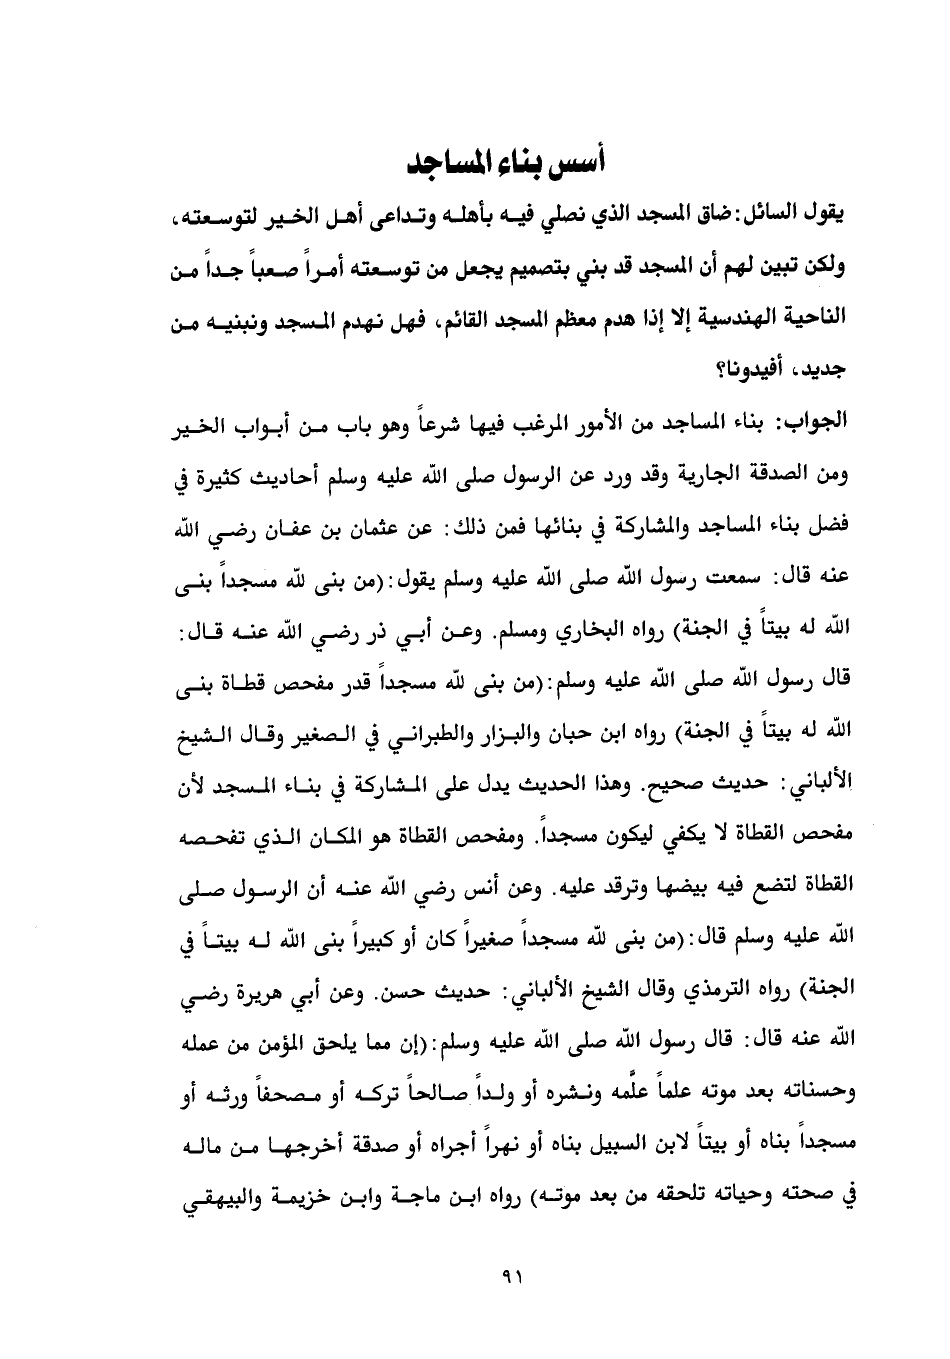 أسس بناء المساجد
يقول السائل: ضاق المسجد الذي نصلي فيه بأهله وتداعى أهل الخير لتوسعته،
ولكن تبين لهم أن المسجد قد بني بتصميم يجعل من توسعته أمراً صعباً جداً من
الناحية الهندسية إلا إذا هدم معظم المسجد القائم، فهل نهدم المسجد ونبنيه من
جديد، أفيدونا؟
الجواب: بناء المساجد من الأمور المرغب فيها شرعاً وهو باب من أبواب الخير
ومن الصدقة الجارية وقد ورد عن الرسول صلى الله عليه وسلم أحاديث كثيرة في
فضل بناء المساجد والمشاركة في بنائها فمن ذلك: عن عثمان بن عفان رضي الله
عنه قال: سمعت رسول الله صلى الله عليه وسلم يقول: (من بنى لله مسجداً بنى
الله له بيتاً في الجنة) رواه البخاري ومسلم. وعن أبي ذر رضي الله عنه قال:
قال رسول الله صلى الله عليه وسلم: (من بنى لله مسجداً قدر مفحص قطاة بنى
الله له بيتاً في الجنة) رواه ابن حبان والبزار والطبراني في الصغير وقال الشيخ
الألباني: حديث صحيح. وهذا الحديث يدل على المشاركة في بناء المسجد لأن
مفحص القطاة لا يكفي ليكون مسجداً. ومفحص القطاة هو المكان الذي تفحصه
القطاة لتضع فيه بيضها وترقد عليه. وعن أنس رضي الله عنه أن الرسول صلى
الله عليه وسلم قال: (من بنى لله مسجداً صغيراً كان أو كبيراً بنى الله له بيتاً في
الجنة) رواه الترمذي وقال الشيخ الألباني: حديث حسن. وعن أبي هريرة رضي
الله عنه قال: قال رسول الله صلى الله عليه وسلم: (إن مما يلحق المؤمن من عمله
وحسناته بعد موته علماً علَّمه ونشره أو ولداً صالحاً تركه أو مصحفاً ورثه أو
مسجداً بناه أو بيتاً لابن السبيل بناه أو نهراً أجراه أو صدقة أخرجها من ماله
في صحته وحياته تلحقه من بعد موته) رواه ابن ماجة وابن خزيمة والبيهقي
٩١